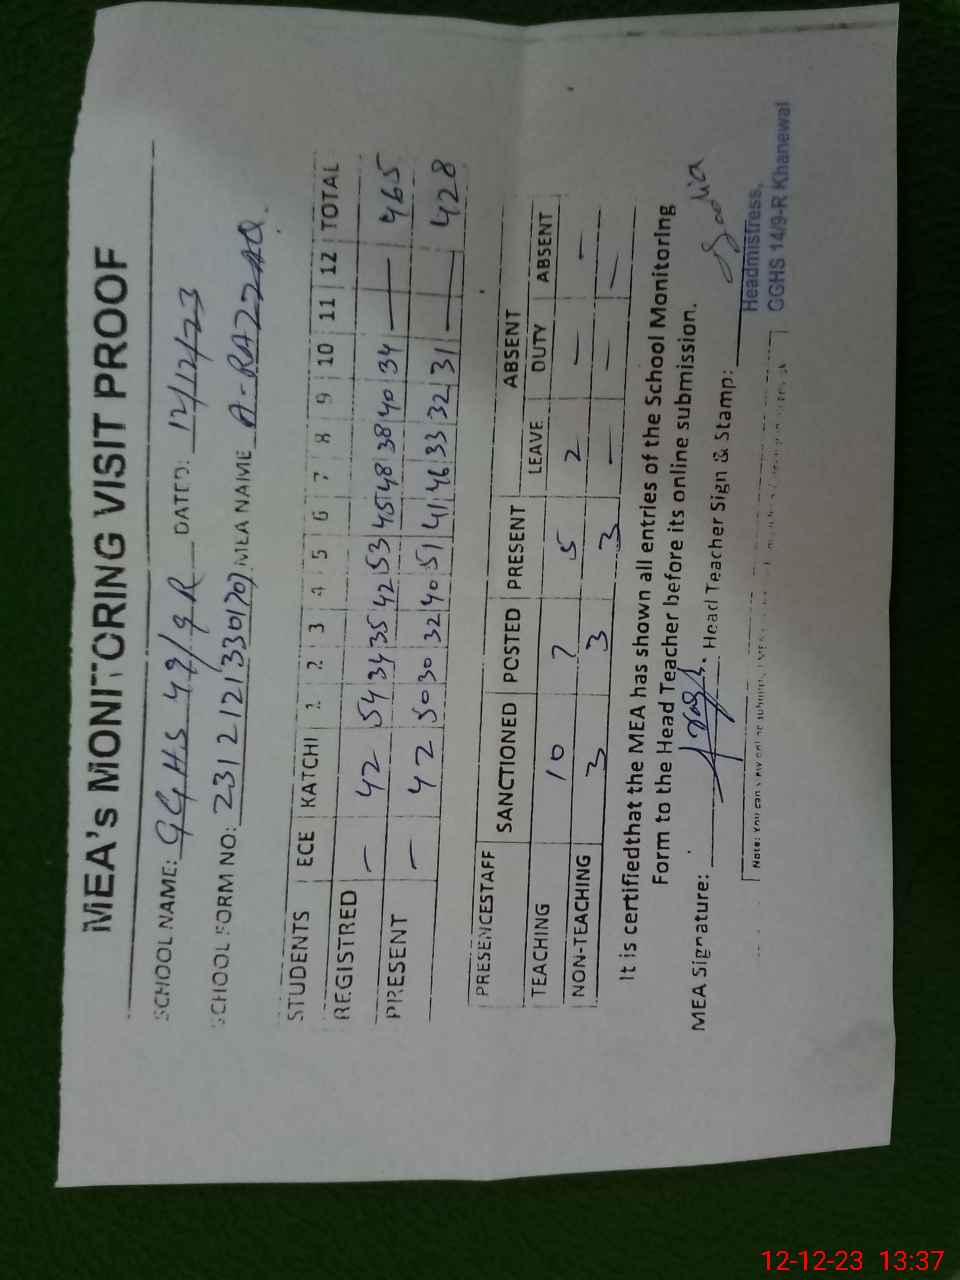 MEA's MONITORING VISIT PROOF
SCHOOL NAME: GGHS 49/9R DATED: 12/12/23
SCHOOL FORM NO: MEA NAME A-RAZZAQ.
STUDENTS ECE KATCHI 1 2 3 4 5 6 7 8 9 10 11 12 TOTAL
REGISTRED — 42 54 34 35 42 53 45 48 38 40 34 — 465
PRESENT — 42 50 30 32 40 51 41 46 33 32 31 — 428
PRESENCESTAFF SANCTIONED POSTED PRESENT ABSENT
LEAVE DUTY ABSENT
TEACHING 10 7 5 2 — —
NON-TEACHING 3 3 3 — — —
It is certifiedthat the MEA has shown all entries of the School Monitoring
Form to the Head Teacher before its online submission.
MEA Signature: Head Teacher Sign & Stamp:
Headmistress,
GGHS 14/9-R Khanewal
Note: You can view online
12-12-23 13:37